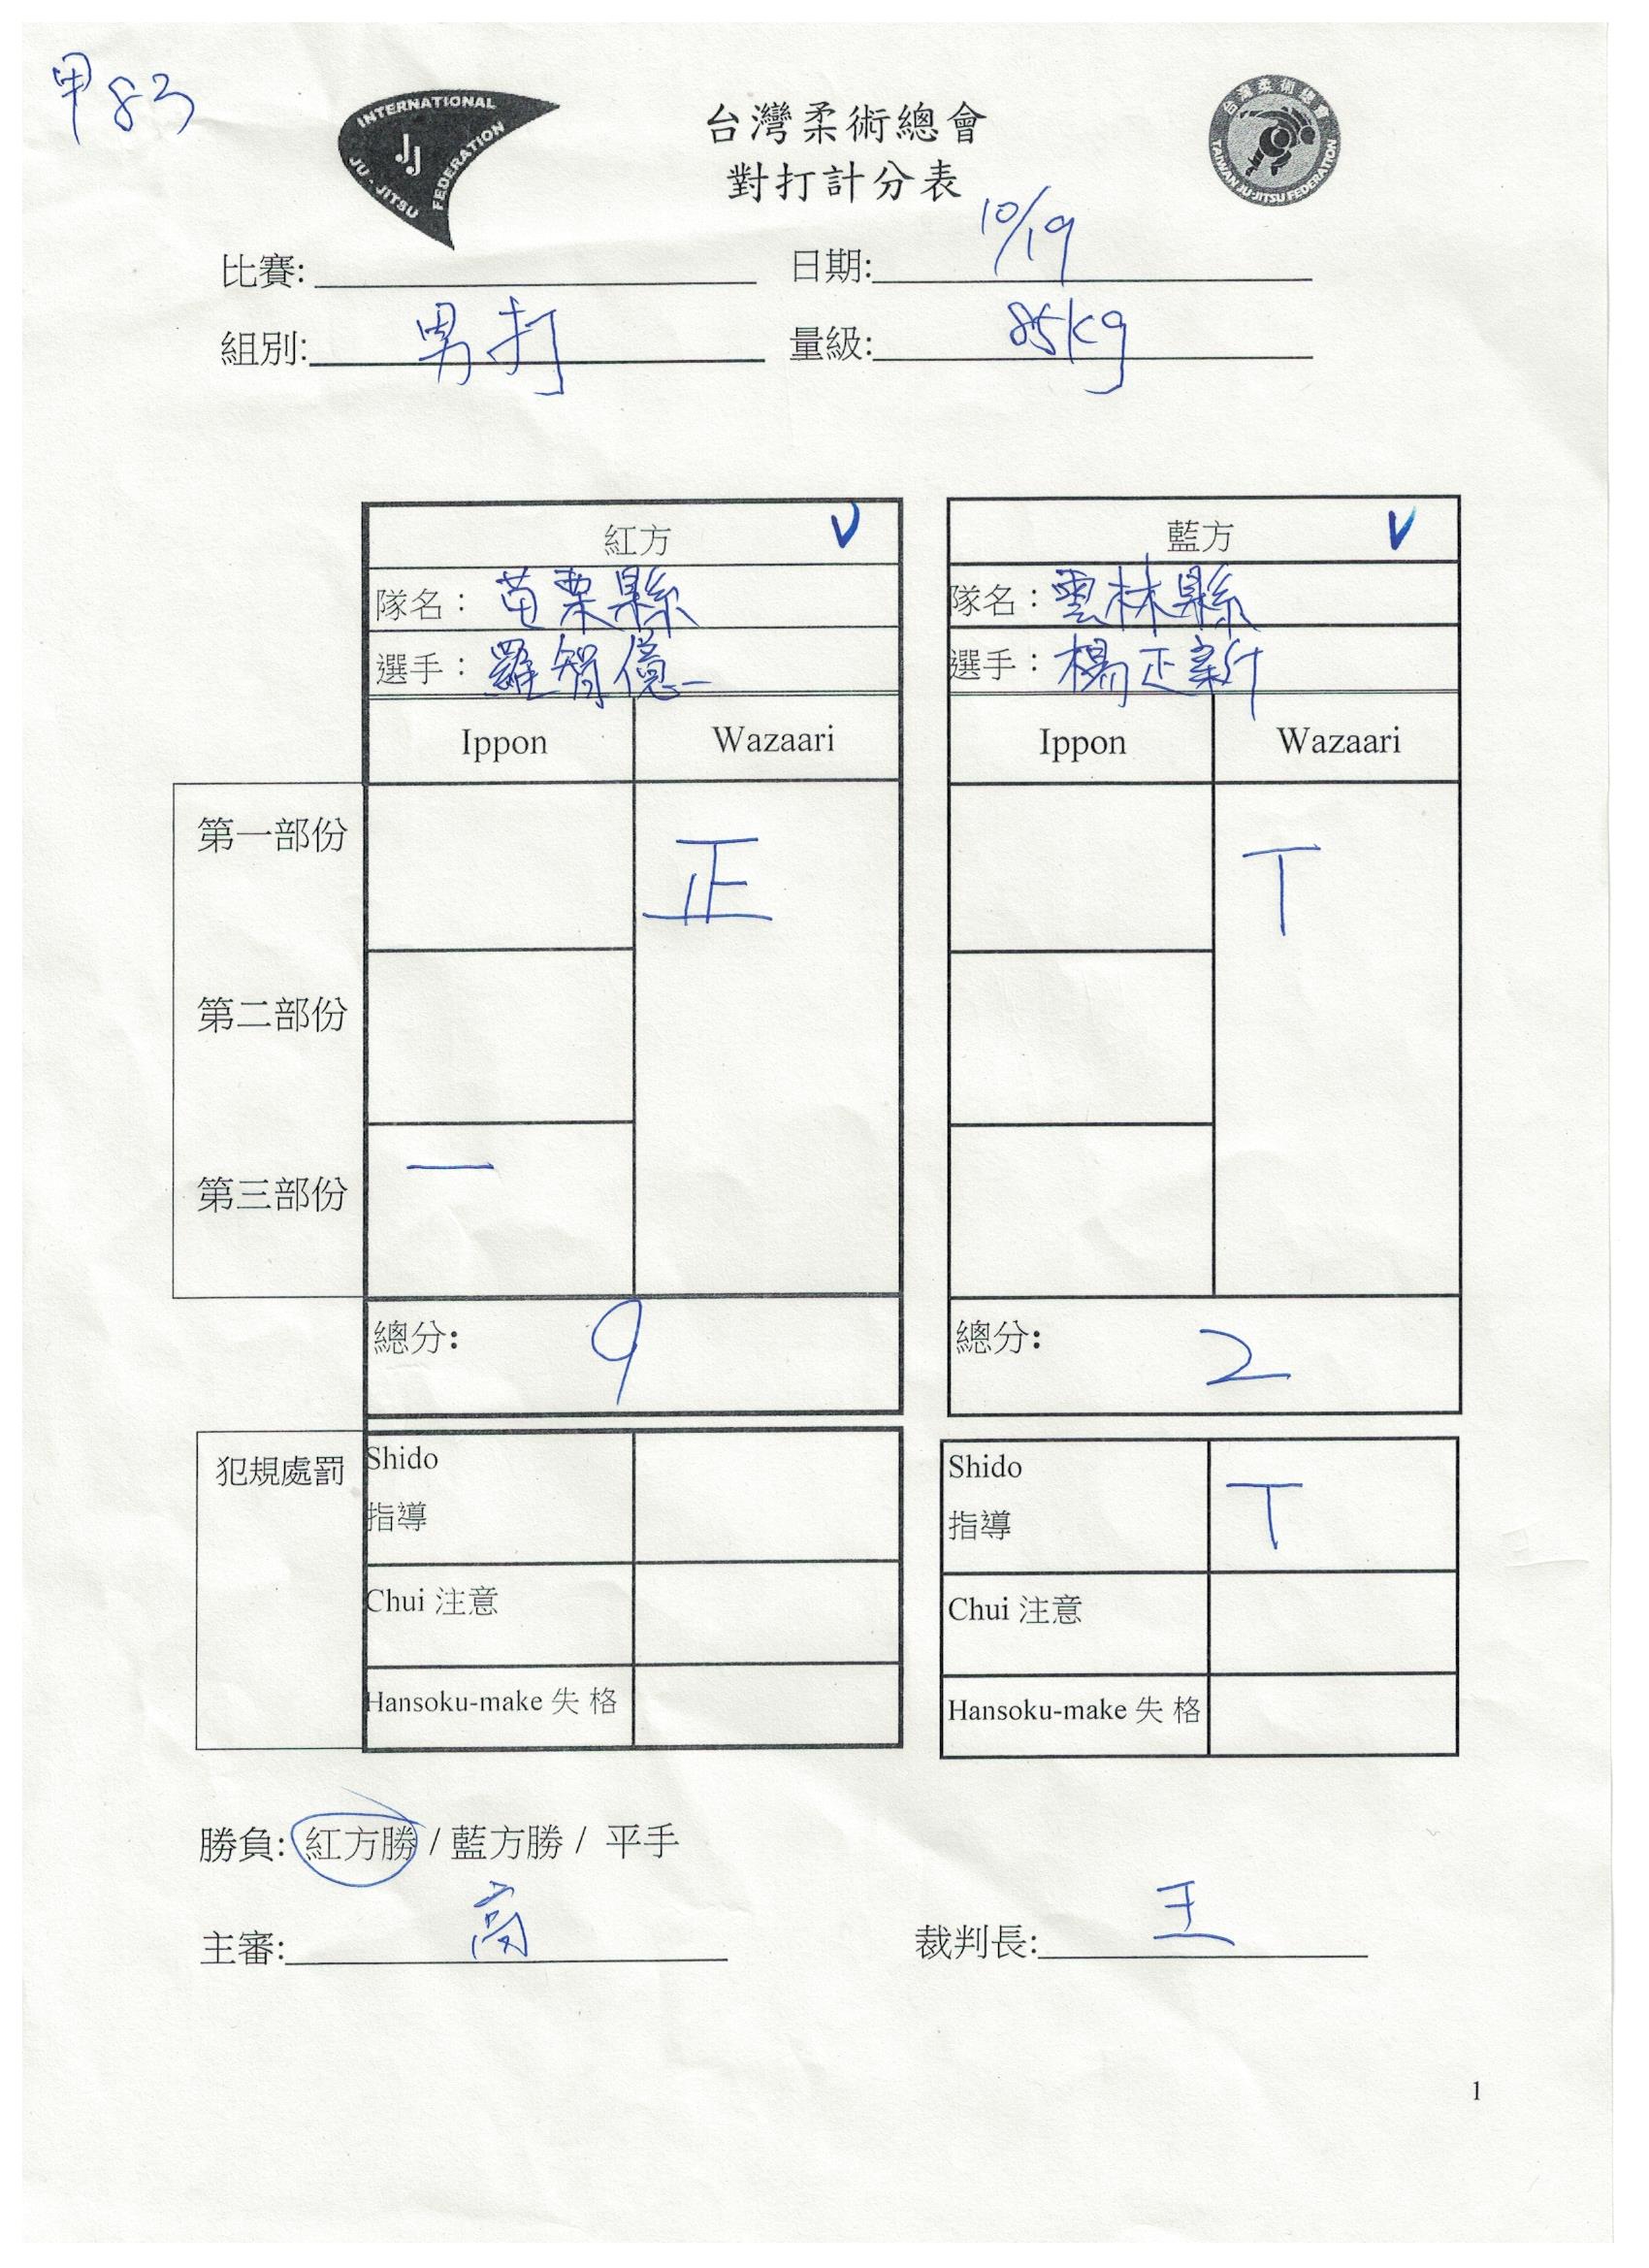 甲83
INTERNATIONAL
JJ
JU-JITSU FEDERATION
台灣柔術總會
TAIWAN JU-JITSU FEDERATION
台灣柔術總會
對打計分表
比賽: 日期: 10/19
組別: 男打 量級: 85kg
紅方 V 藍方 V
隊名: 苗栗縣 隊名: 雲林縣
選手: 羅智億 選手: 楊正新
Ippon Wazaari Ippon Wazaari
第一部份 正 T
第二部份
第三部份 一
總分: 9 總分: 2
犯規處罰 Shido Shido
指導 指導 T
Chui 注意 Chui 注意
Hansoku-make 失 格 Hansoku-make 失 格
勝負: 紅方勝 / 藍方勝 / 平手
主審: 高 裁判長: 王
1